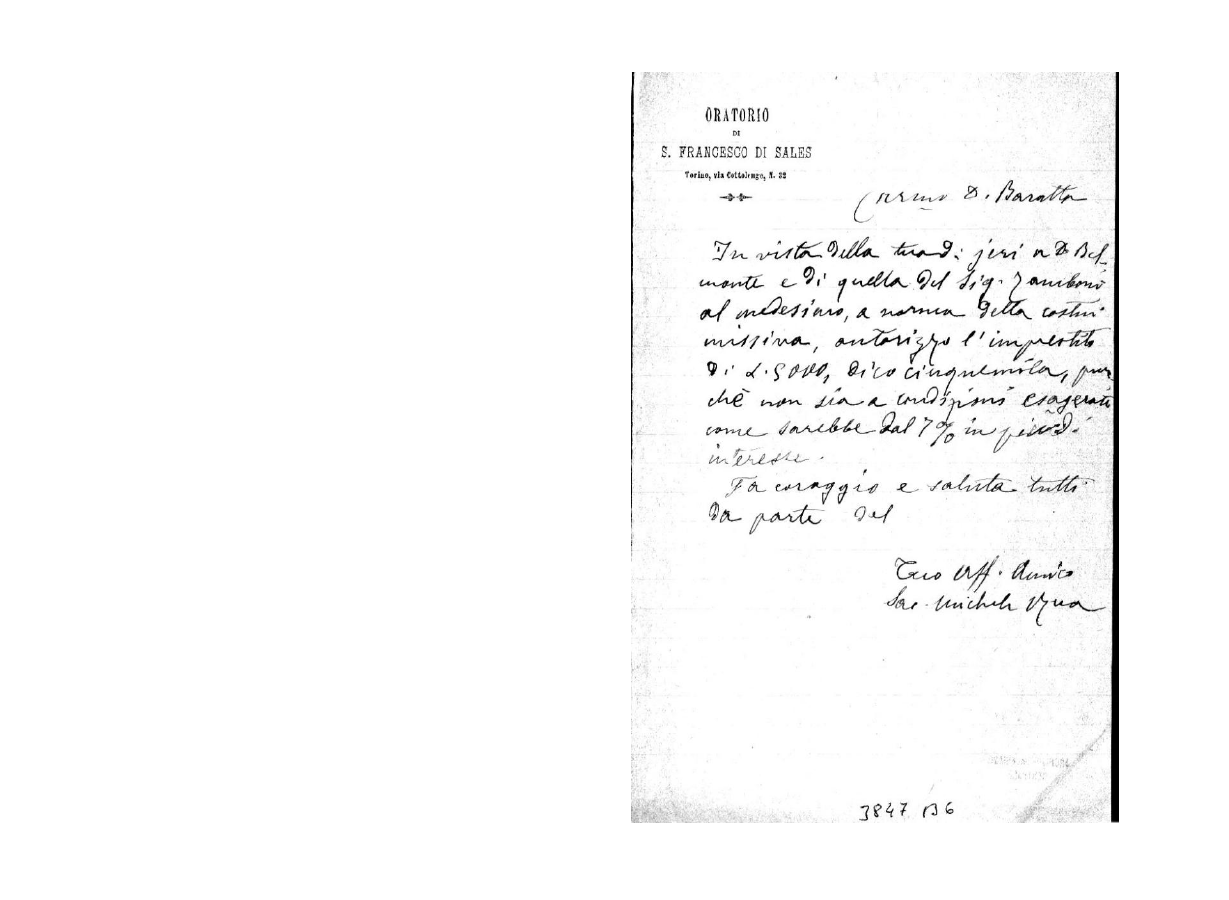 ORATORIO
DI
S. FRANCESCO DI SALES
Torino, via Cottolengo, N. 32
Car.mo D. Baratta
In vista della tua di jeri a D. Bel-
monte e di quella del Sig. Zamboni
al medesimo, a norma della costui
missiva, autorizzo l'imprestito
di L. 5000, dico cinquemila, pur
chè non sia a condizioni esagerate
come sarebbe dal 7% in più di
interesse.
Fa coraggio e saluta tutti
da parte del
Tuo Aff. Amico
Sac. Michele Rua
3847 B6